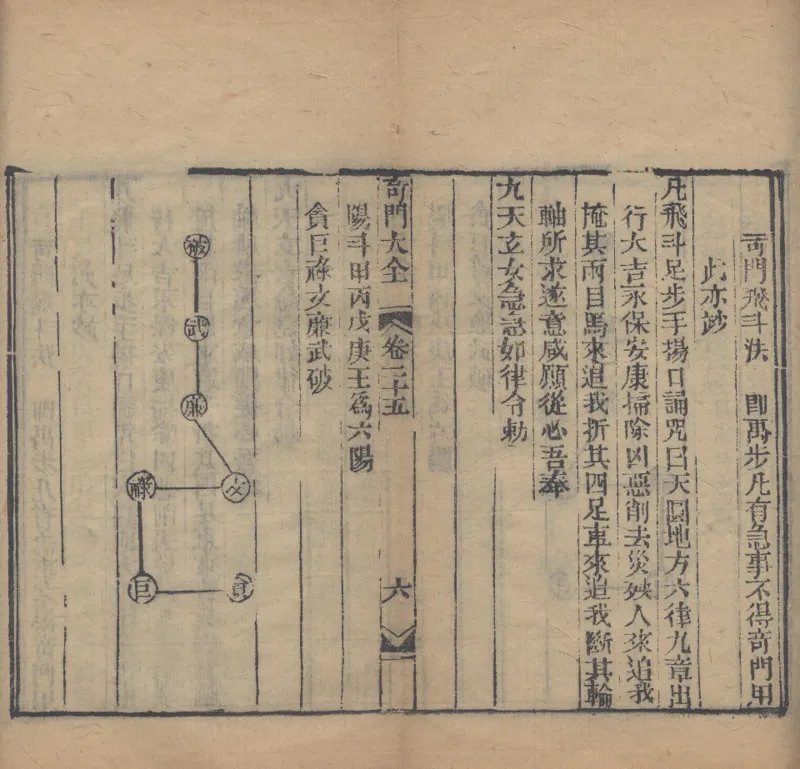 奇門飛斗法　即禹步凡有急事不得奇門用
此亦妙
凡飛斗足步手揚口誦咒曰天圓地方六律九章出
行大吉永保安康掃除凶惡削去災殃人來追我
掩其兩目馬來追我折其四足車來追我斷其輪
軸所求遂意咸願從心吾奉
九天玄女急急如律令勅
奇門大全　卷二十五　六
陽斗甲丙戊庚壬爲六陽
貪巨祿文廉武破
破
武
廉
文
祿
巨
貪